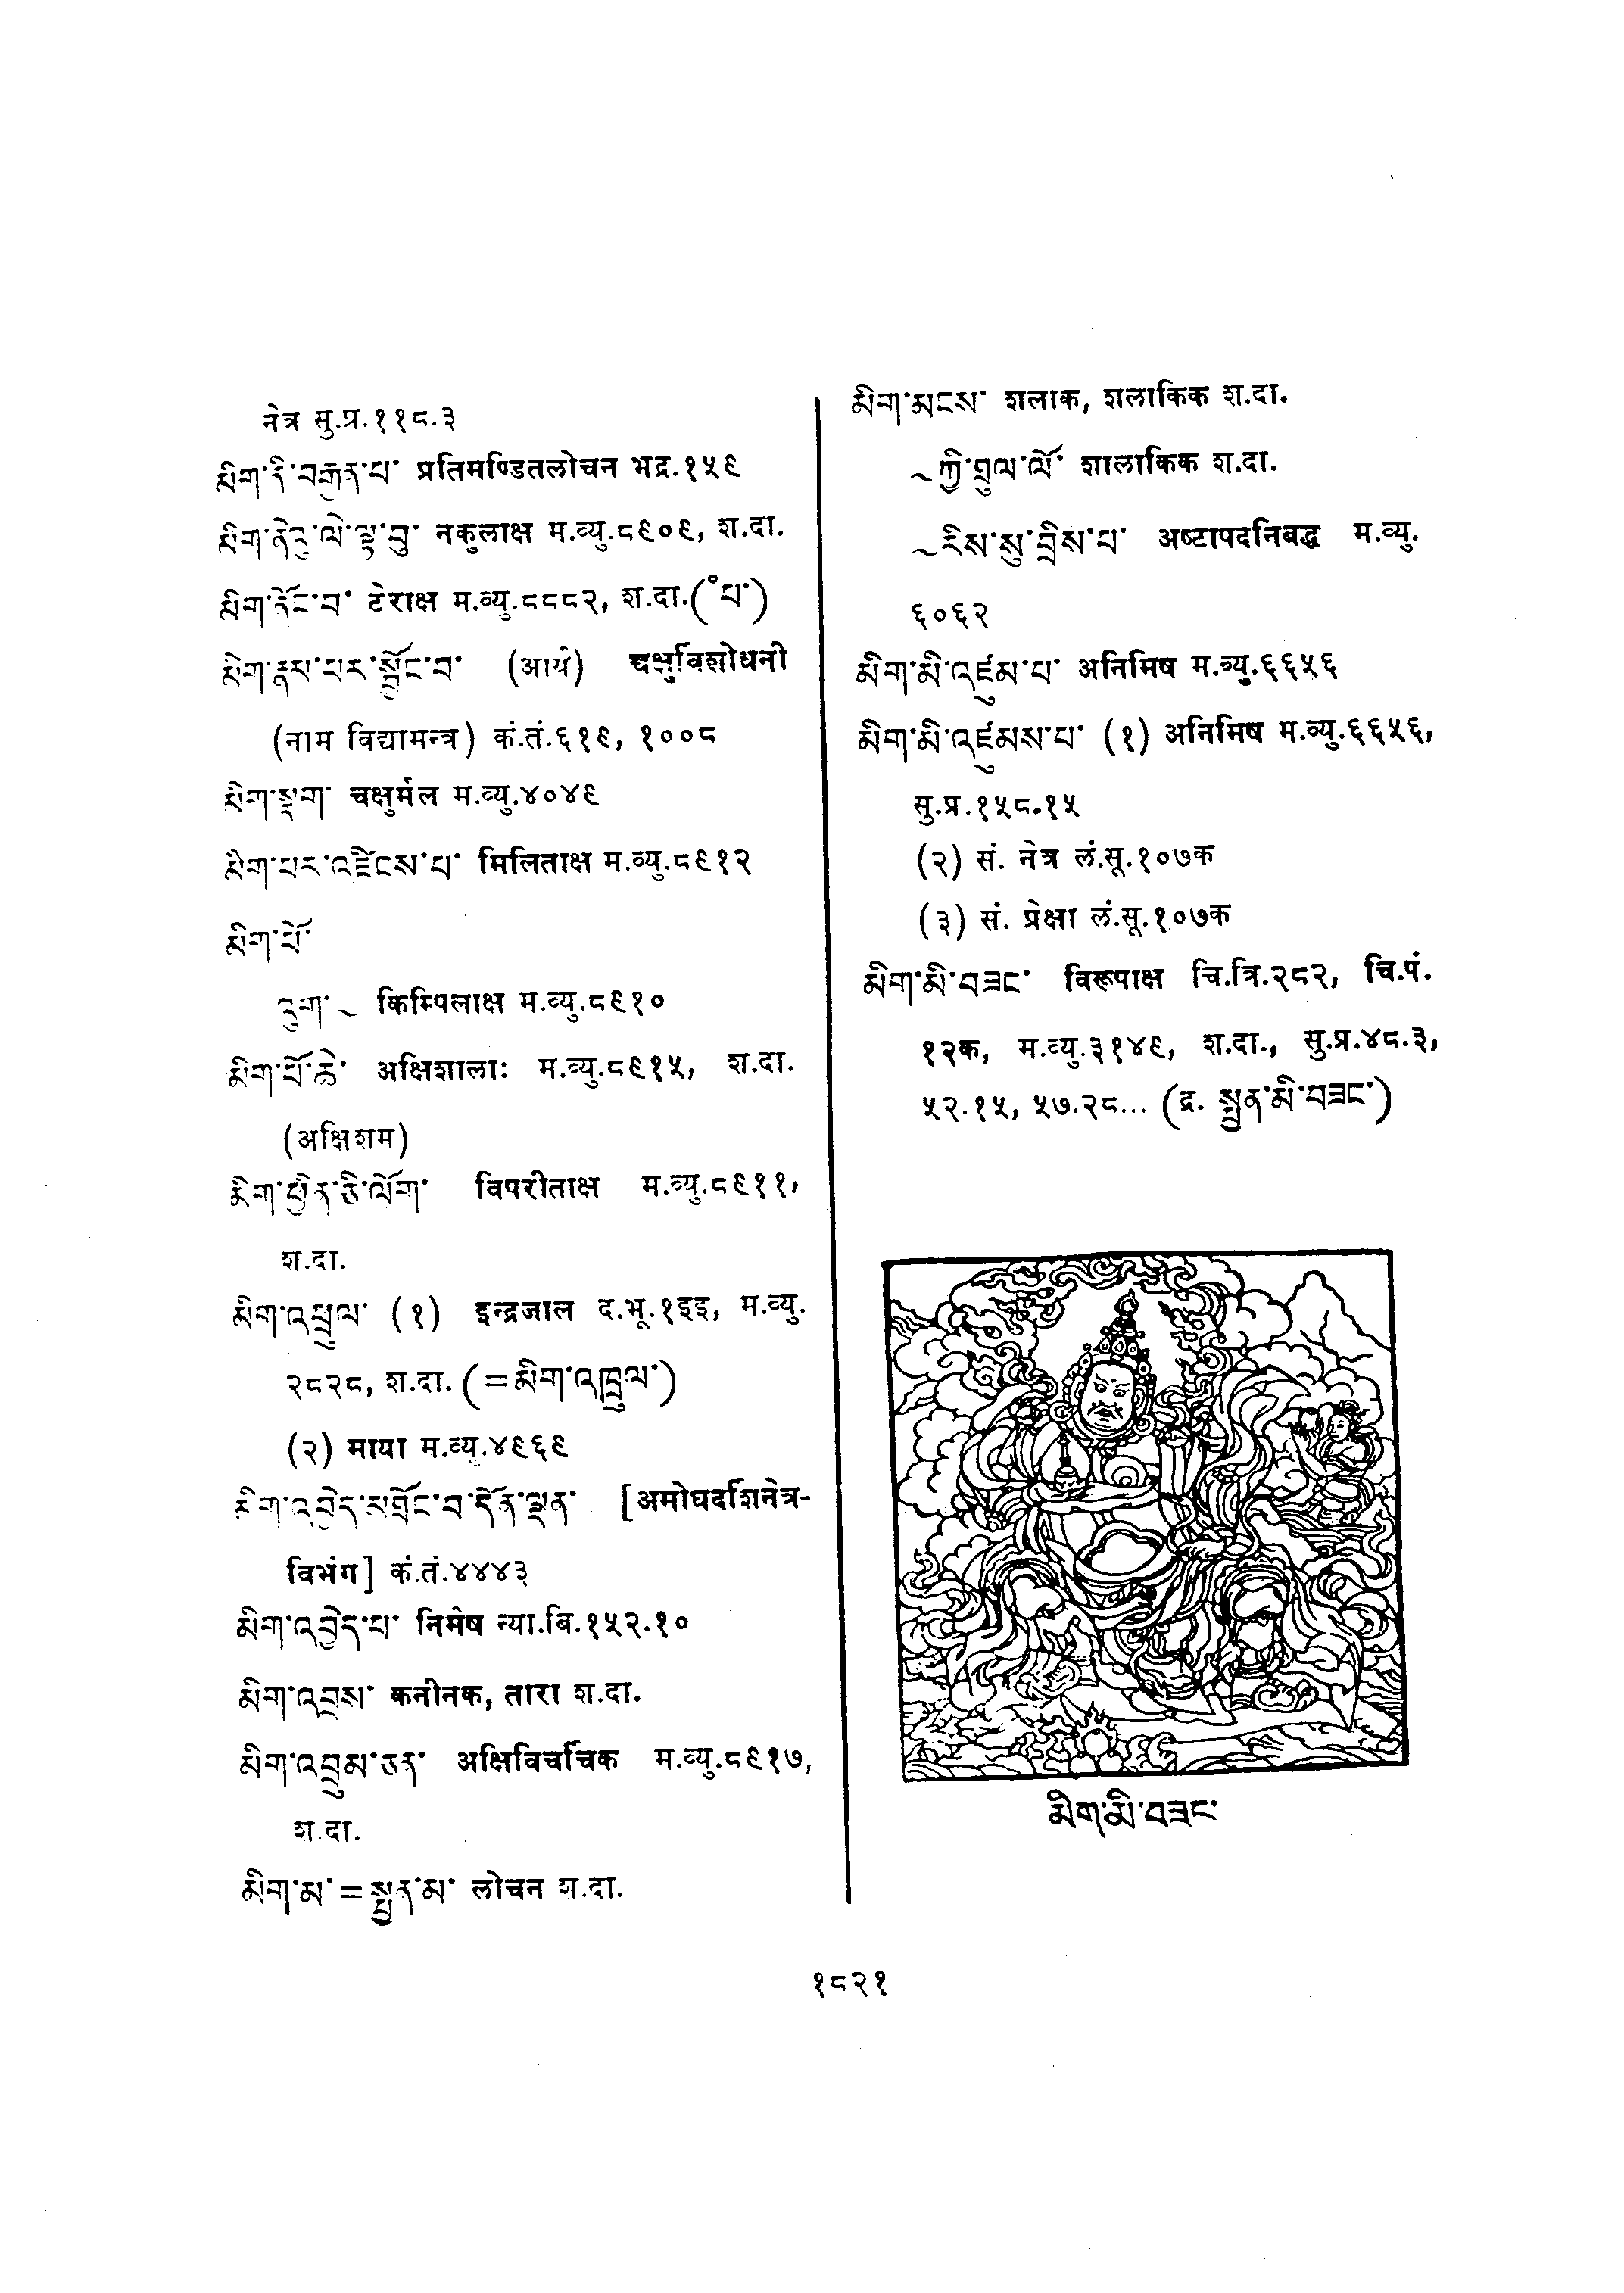 नेत्र सु.प्र.११८.३
མིག་ནི་བརྒྱན་པ་ प्रतिमण्डितलोचन भद्र.१५९
མིག་ནེའུ་ལེ་ལྟ་བུ་ नकुलाक्ष म.व्यु.८९०९, श.दा.
མིག་ནོར་བ་ टेराक्ष म.व्यु.८८८२, श.दा.(°པ་)
མིག་རྣམ་པར་སྦྱོང་བ་ (आर्य) चक्षुर्विशोधनी
(नाम विद्यामन्त्र) कं.तं.६१९, १००८
མིག་སྣག་ चक्षुर्मल म.व्यु.४०४९
མིག་པར་འཛིངས་པ་ मिलिताक्ष म.व्यु.८९१२
མིག་པོ་
འུག་ ~ किम्पिलाक्ष म.व्यु.८९१०
མིག་པོ་ཆེ་ अक्षिशालाः म.व्यु.८९१५, श.दा.
(अक्षिशम)
མིག་ཕྱིན་ཅི་ལོག་ विपरीताक्ष म.व्यु.८९११,
श.दा.
མིག་འཕྲུལ་ (१) इन्द्रजाल द.भू.१इइ, म.व्यु.
२८२८, श.दा. (=མིག་འཁྲུལ་)
(२) माया म.व्यु.४९६९
མིག་འབྱེད་མཐོང་བ་དོན་ལྡན་ [अमोघदर्शिनेत्र-
विभंग] कं.तं.४४४३
མིག་འབྱེད་པ་ निमेष न्या.बि.१५२.१०
མིག་འབྲས་ कनीनक, तारा श.दा.
མིག་འབྲུམ་ཅན་ अक्षिविचर्चिक म.व्यु.८९१७,
श.दा.
མིག་མ་ = སྤྱན་མ་ लोचन श.दा.
མིག་མངས་ शलाक, शलाकिक श.दा.
~ཀྱི་བྲུལ་ལོ་ शालाकिक श.दा.
~རིས་སུ་བྲིས་པ་ अष्टापदनिबद्ध म.व्यु.
६०६२
མིག་མི་འཛུམ་པ་ अनिमिष म.व्यु.६६५६
མིག་མི་འཛུམས་པ་ (१) अनिमिष म.व्यु.६६५६,
सु.प्र.१५८.१५
(२) सं. नेत्र लं.सू.१०७क
(३) सं. प्रेक्षा लं.सू.१०७क
མིག་མི་བཟང་ विरूपाक्ष चि.त्रि.२८२, चि.पं.
१२क, म.व्यु.३१४९, श.दा., सु.प्र.४८.३,
५२.१५, ५७.२८... (द्र. སྤྱན་མི་བཟང་)
མིག་མི་བཟང་
१८२१